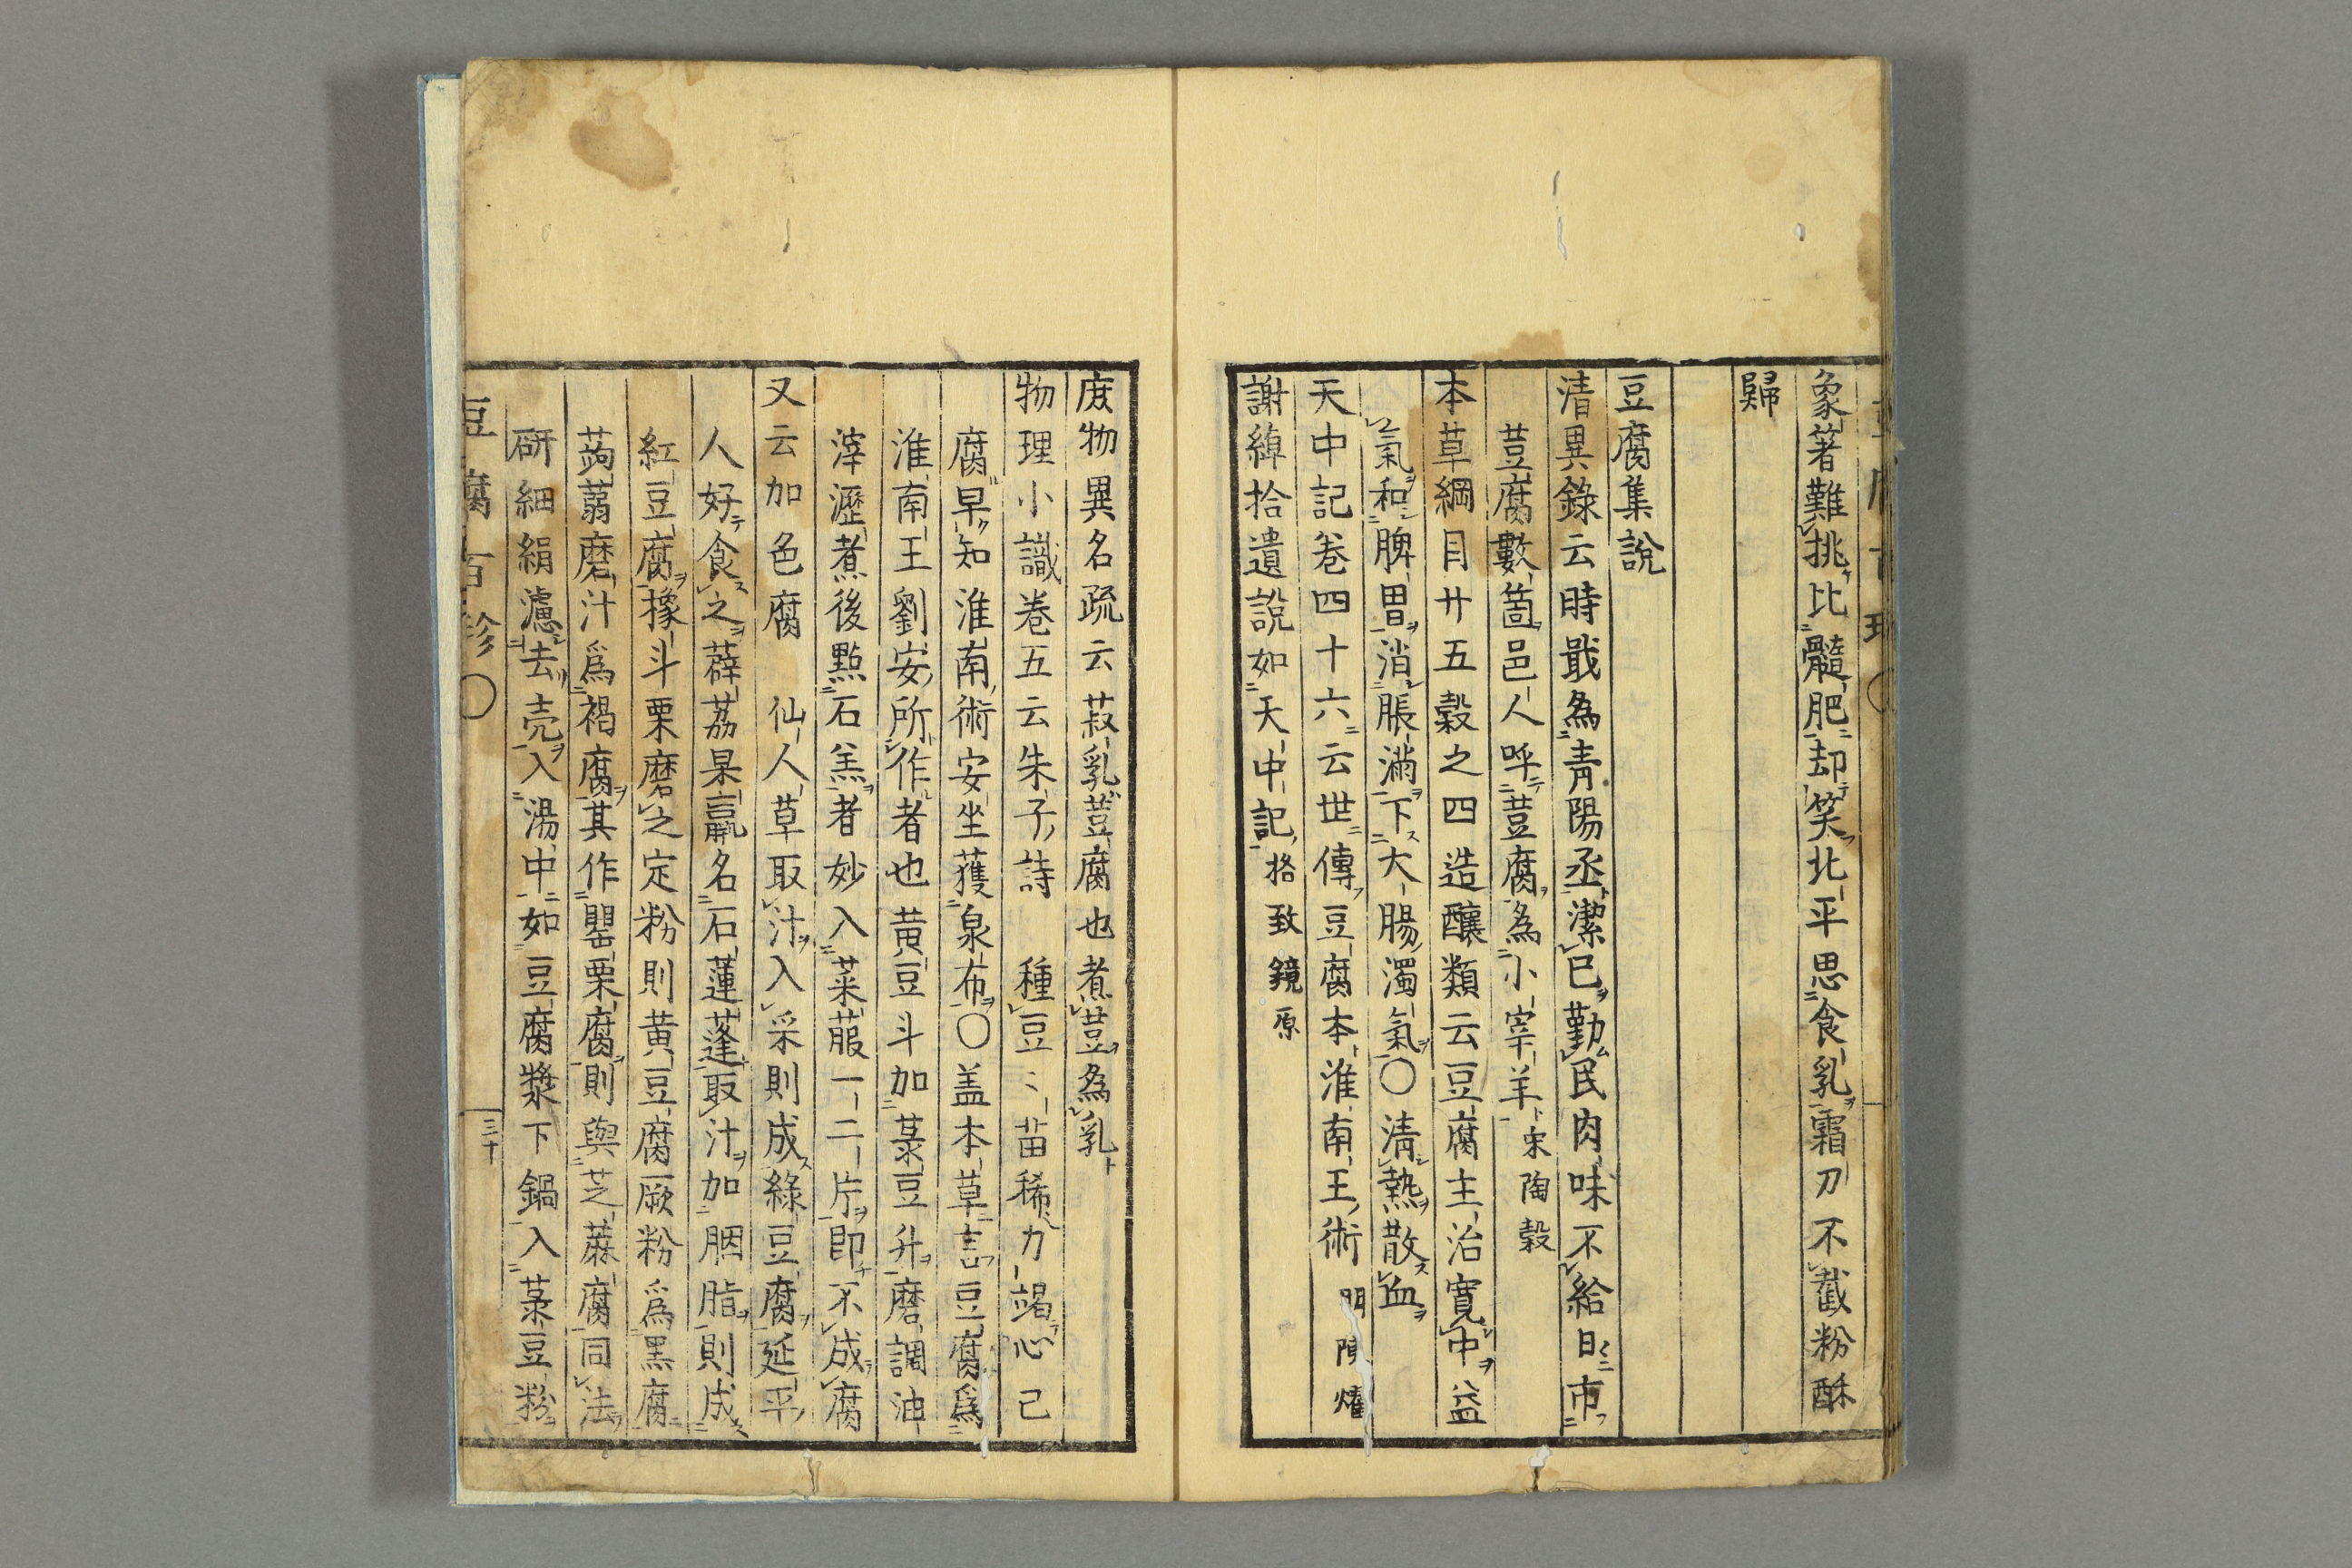 象箸難挑比髓肥却笑北平思食乳霜刀不截粉酥
歸
豆腐集說
清異錄云時戢為青陽丞潔已勤民肉味不給日市
荳腐數箇邑人呼荳腐為小宰羊宋陶穀
本草綱目廾五穀之四造釀類云豆腐主治寬中益
氣和脾胃消脹滿下大腸濁氣〇清熱散血
天中記卷四十六云世傳豆腐本淮南王術明陳燿
謝綽拾遺說如天中記格致鏡原
庶物異名疏云菽乳荳腐也煮荳為乳
物理小識卷五云朱子詩　種豆〻苗稀力竭心己
腐早知淮南術安坐獲泉布〇盖本草言豆腐爲
淮南王劉安所作者也黄豆斗加菉豆升磨調油
滓瀝煮後㸃石羔者妙入菜菔一二片即不成腐
又云加色腐　仙人草取汁入采則成綠豆腐延平
人好食之薜荔杲羸名石蓮蓬取汁加胭脂則成
紅豆腐橡斗栗磨之定粉則黄豆腐厥粉爲黒腐
蒟蒻磨汁爲褐腐其作罌栗腐則與芝蔴腐同法
研細絹濾去売入湯中如豆腐漿下鍋入菉豆粉
豆腐百珍〇
三十